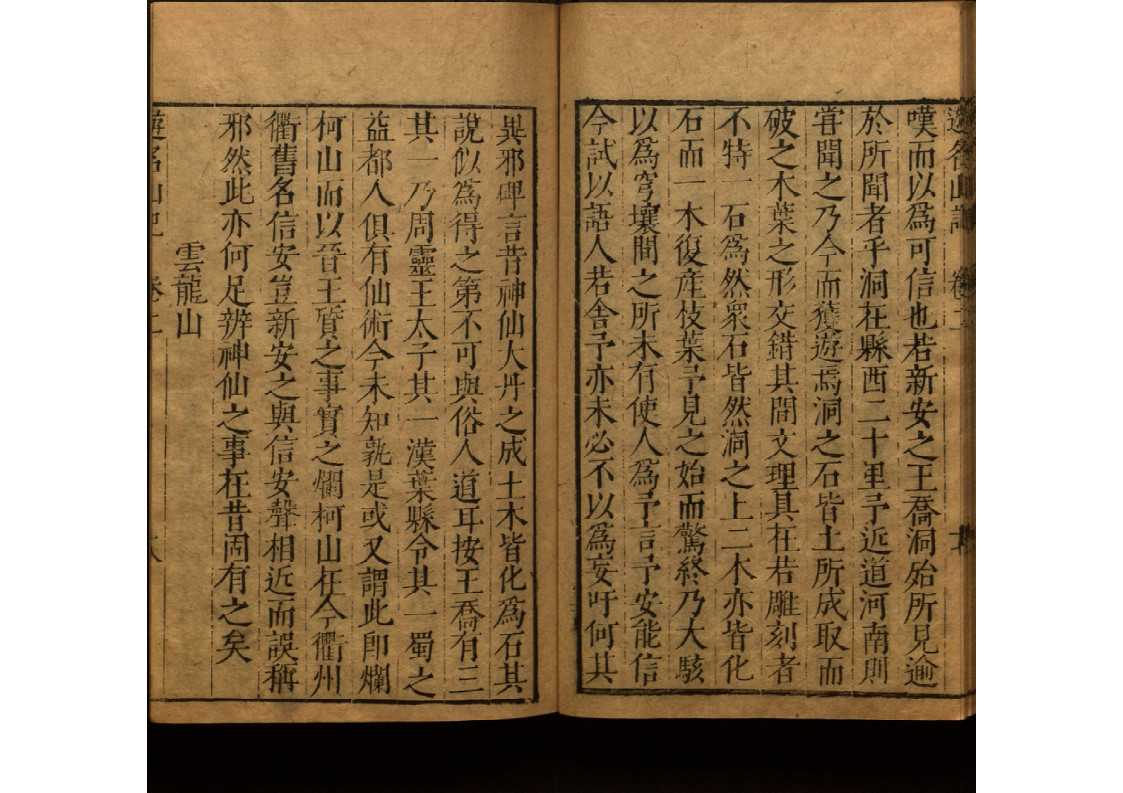 遊名山記 卷二
嘆而以爲可信也若新安之王喬洞始所見逾
於所聞者乎洞在縣西二十里予近道河南則
嘗聞之乃今而獲遊焉洞之石皆土所成取而
破之木葉之形交錯其間文理具在若雕刻者
不特一石爲然衆石皆然洞之上二木亦皆化
石而一木復産枝葉予見之始而驚終乃大駭
以爲穹壤間之所未有使人爲予言予安能信
今試以語人若舎予亦未必不以爲妄吁何其
異邪碑言昔神仙大丹之成土木皆化爲石其
說似爲得之第不可與俗人道耳按王喬有三
其一乃周靈王太子其一漢葉縣令其一蜀之
益都人俱有仙術今未知孰是或又謂此卽爛
柯山而以晉王質之事實之爛柯山在今衢州
衢舊名信安豈新安之與信安聲相近而誤稱
邪然此亦何足辨神仙之事在昔固有之矣
雲龍山
遊名山記 卷二